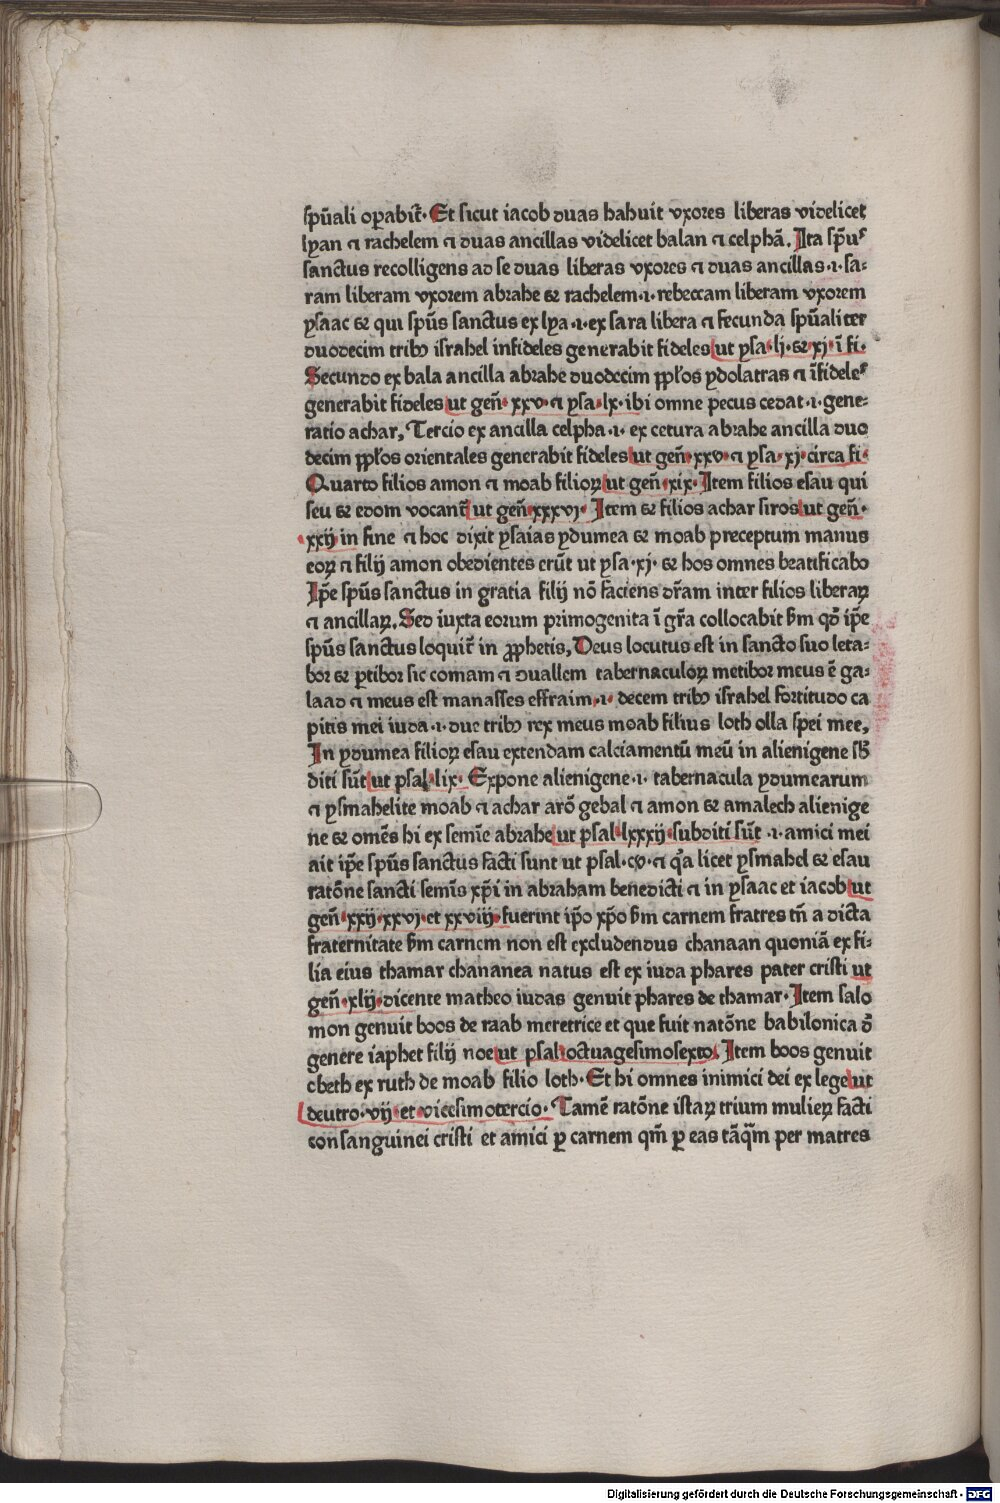 spũali oꝑabit̃· Et sicut iacob duas habuit vxores liberas videlicet
lyan ⁊ rachelem ⁊ duas ancillas videlicet balan ⁊ celphã. Ita spũs
sanctus recolligens ad se duas liberas vxores ⁊ duas ancillas·i·sa⸗
ram liberam vxorem abrahe et rachelem·i·rebeccam liberam vxorem
ysaac et qui spũs sanctus ex lya·i·ex sara libera ⁊ fecunda spũaliter
duodecim tribꝰ israhel infideles generabit fideles ut ysa·lj·et·xj·ĩ fi·
Secundo ex bala ancilla abrahe duodecim pp̃los ydolatras ⁊ ĩfideles
generabit fideles ut geñ·xxv·⁊ ysa·lx·ibi omne pecus cedat·i·gene⸗
ratio achar, Tercio ex ancilla celpha·i· ex cetura abrahe ancilla duo
decim pp̃los orientales generabit fideles ut geñ·xxv·⁊ ysa·xj·circa fi·
Quarto filios amon ⁊ moab filioꝝ ut geñ·xix·Item filios esau qui
seu et edom vocant̃ ut geñ·xxxvj· Item et filios achar siros ut geñ·
xxij in fine ⁊ hoc dixit ysaias ydumea et moab preceptum manus
eoꝝ ⁊ filij amon obedientes erũt ut ysa·xj· et hos omnes beatificabo
Ip̃e spũs sanctus in gratia filij nõ faciens dr̃am inter filios liberaꝝ
⁊ ancillaꝝ, Sed iuxta eorum primogenita ĩ gr̃a collocabit s̃m qd̃ ip̃e
spũs sanctus loquit̃ in ꝓphetis, Deus locutus est in sancto suo leta⸗
bor et ꝑtibor sicomam ⁊ ↄuallem tabernaculoꝝ metibor meus ẽ ga⸗
laad ⁊ meus est manasses effraim·i· decem tribꝰ israhel fortitudo ca
pitis mei iuda·i·due tribꝰ rex meus moab filius loth olla spei mee,
In ydumea filioꝝ esau extendam calciamentũ meũ in alienigene sb̃
diti sũt ut psal·lix· Expone alienigene·i· tabernacula ydumearum
⁊ ysmahelite moab ⁊ achar arõ gebal ⁊ amon et amalech alienige
ne et omẽs hi ex semĩe abrahe ut psal·lxxxij·subditi sũt ·i·amici mei
ait ip̃e spũs sanctus facti sunt ut psal·cv·⁊ q̃a licet ysmahel et esau
ratõne sancti semĩs xp̃i in abraham benedicti ⁊ in ysaac et iacob ut
geñ·xxij·xxvj·et xxviij·fuerint ip̃o xp̃o s̃m carnem fratres tñ a dicta
fraternitate s̃m carnem non est excludendus chanaan quoniã ex fi⸗
lia eius thamar chananea natus est ex iuda phares pater cristi ut
geñ·xlij·dicente matheo iudas genuit phares de thamar· Item salo
mon genuit boos de raab meretrice et que fuit natõne babilonica d̃
genere iaphet filij noe ut psal·octuagesimosexto· Item boos genuit
obeth ex ruth de moab filio loth· Et hi omnes inimici dei ex lege ut
deutro·vij·et·vicesimotercio· Tamẽ ratõne istaꝝ trium mulieꝝ facti
consanguinei cristi et amici ꝑ carnem qm̃ ꝑ eas tãq̃m per matres
Digitalisierung gefördert durch die Deutsche Forschungsgemeinschaft - DFG